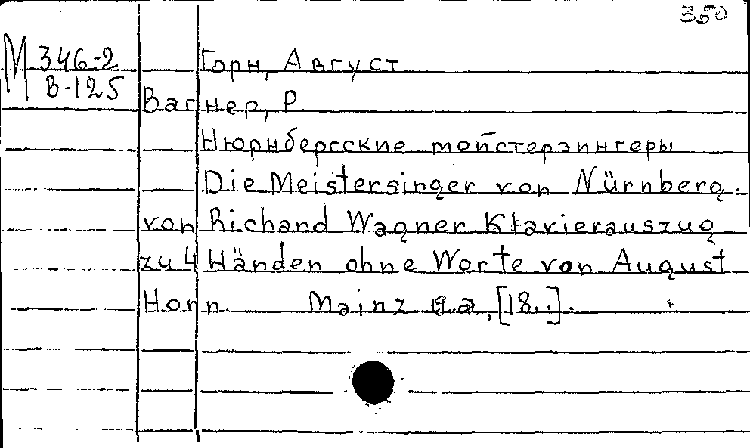 350
М 346-2
В-125
Горн, Август
Вагнер, Р
Нюрнбергские мейстерзингеры
Die Meistersinger von Nürnberg.
von Richard Wagner Klavierauszug
zu 4 Händen ohne Worte von August
Horn. Mainz u.a, [18..].